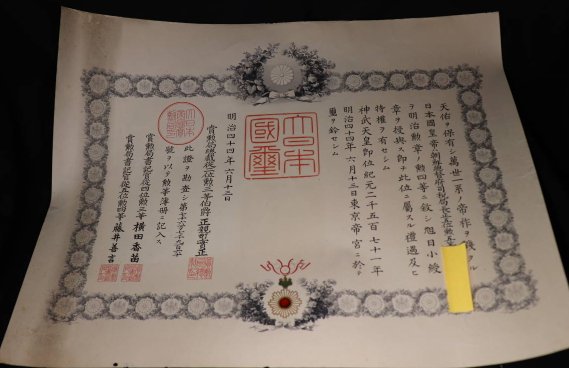 天佑ヲ保有シ萬世一系ノ帝祚ヲ踐
日本國皇帝
ヲ明治勲章ノ勲四等ニ叙シ旭日小綬
章ヲ授與ス即チ此位ニ屬スル禮遇及ヒ
特權ヲ有セシム
神武天皇即位紀元二千五百七十一年
明治四十四年六月十三日東京帝宮ニ於テ
璽ヲ鈐セシム
大日本
國璽
明治四十四年六月十三日
賞勲局総裁從二位勲一等伯爵正親町實正
此證ヲ勘査シ
號ヲ以テ勲等簿冊ニ記入ス
賞勲局書記官從四位勲三等横田香苗
賞勲局書記官從五位勲四等藤井善言